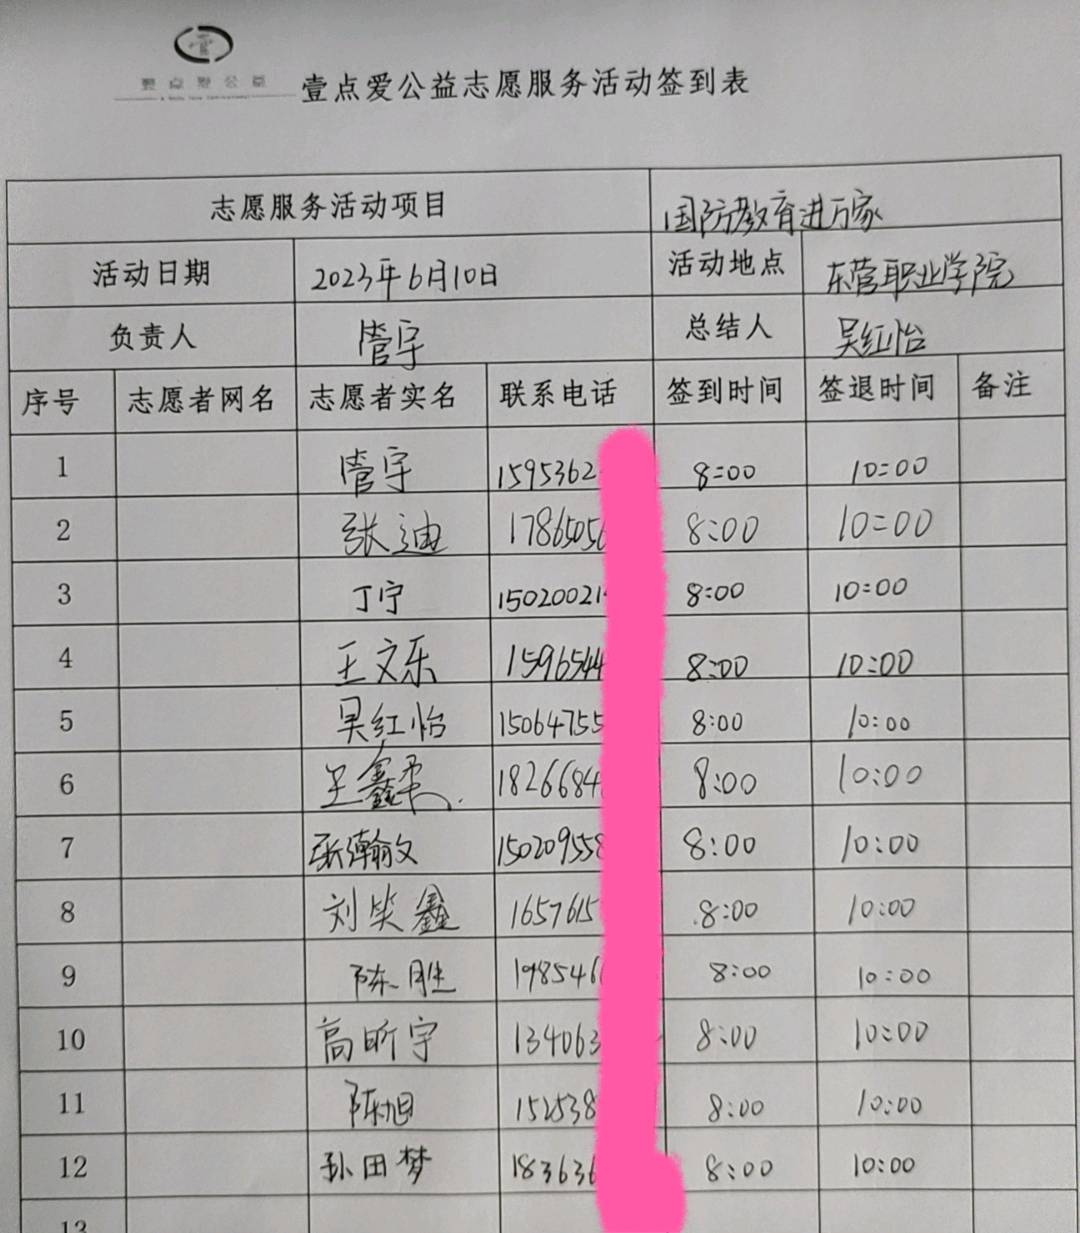 壹点爱公益
壹点爱公益志愿服务活动签到表
志愿服务活动项目 国防教育进万家
活动日期 2023年6月10日 活动地点 东营职业学院
负责人 管宇 总结人 吴红怡
序号 志愿者网名 志愿者实名 联系电话 签到时间 签退时间 备注
1 管宇 1595362 8:00 10:00
2 张迪 17865056 8:00 10:00
3 丁宁 15020021 8:00 10:00
4 王文乐 1596544 8:00 10:00
5 吴红怡 15064755 8:00 10:00
6 王鑫柔 1826684 8:00 10:00
7 张瀚文 150209558 8:00 10:00
8 刘笑鑫 1657615 8:00 10:00
9 陈胜 198546 8:00 10:00
10 高昕宇 134063 8:00 10:00
11 陈旭 152538 8:00 10:00
12 孙田梦 183636 8:00 10:00
13